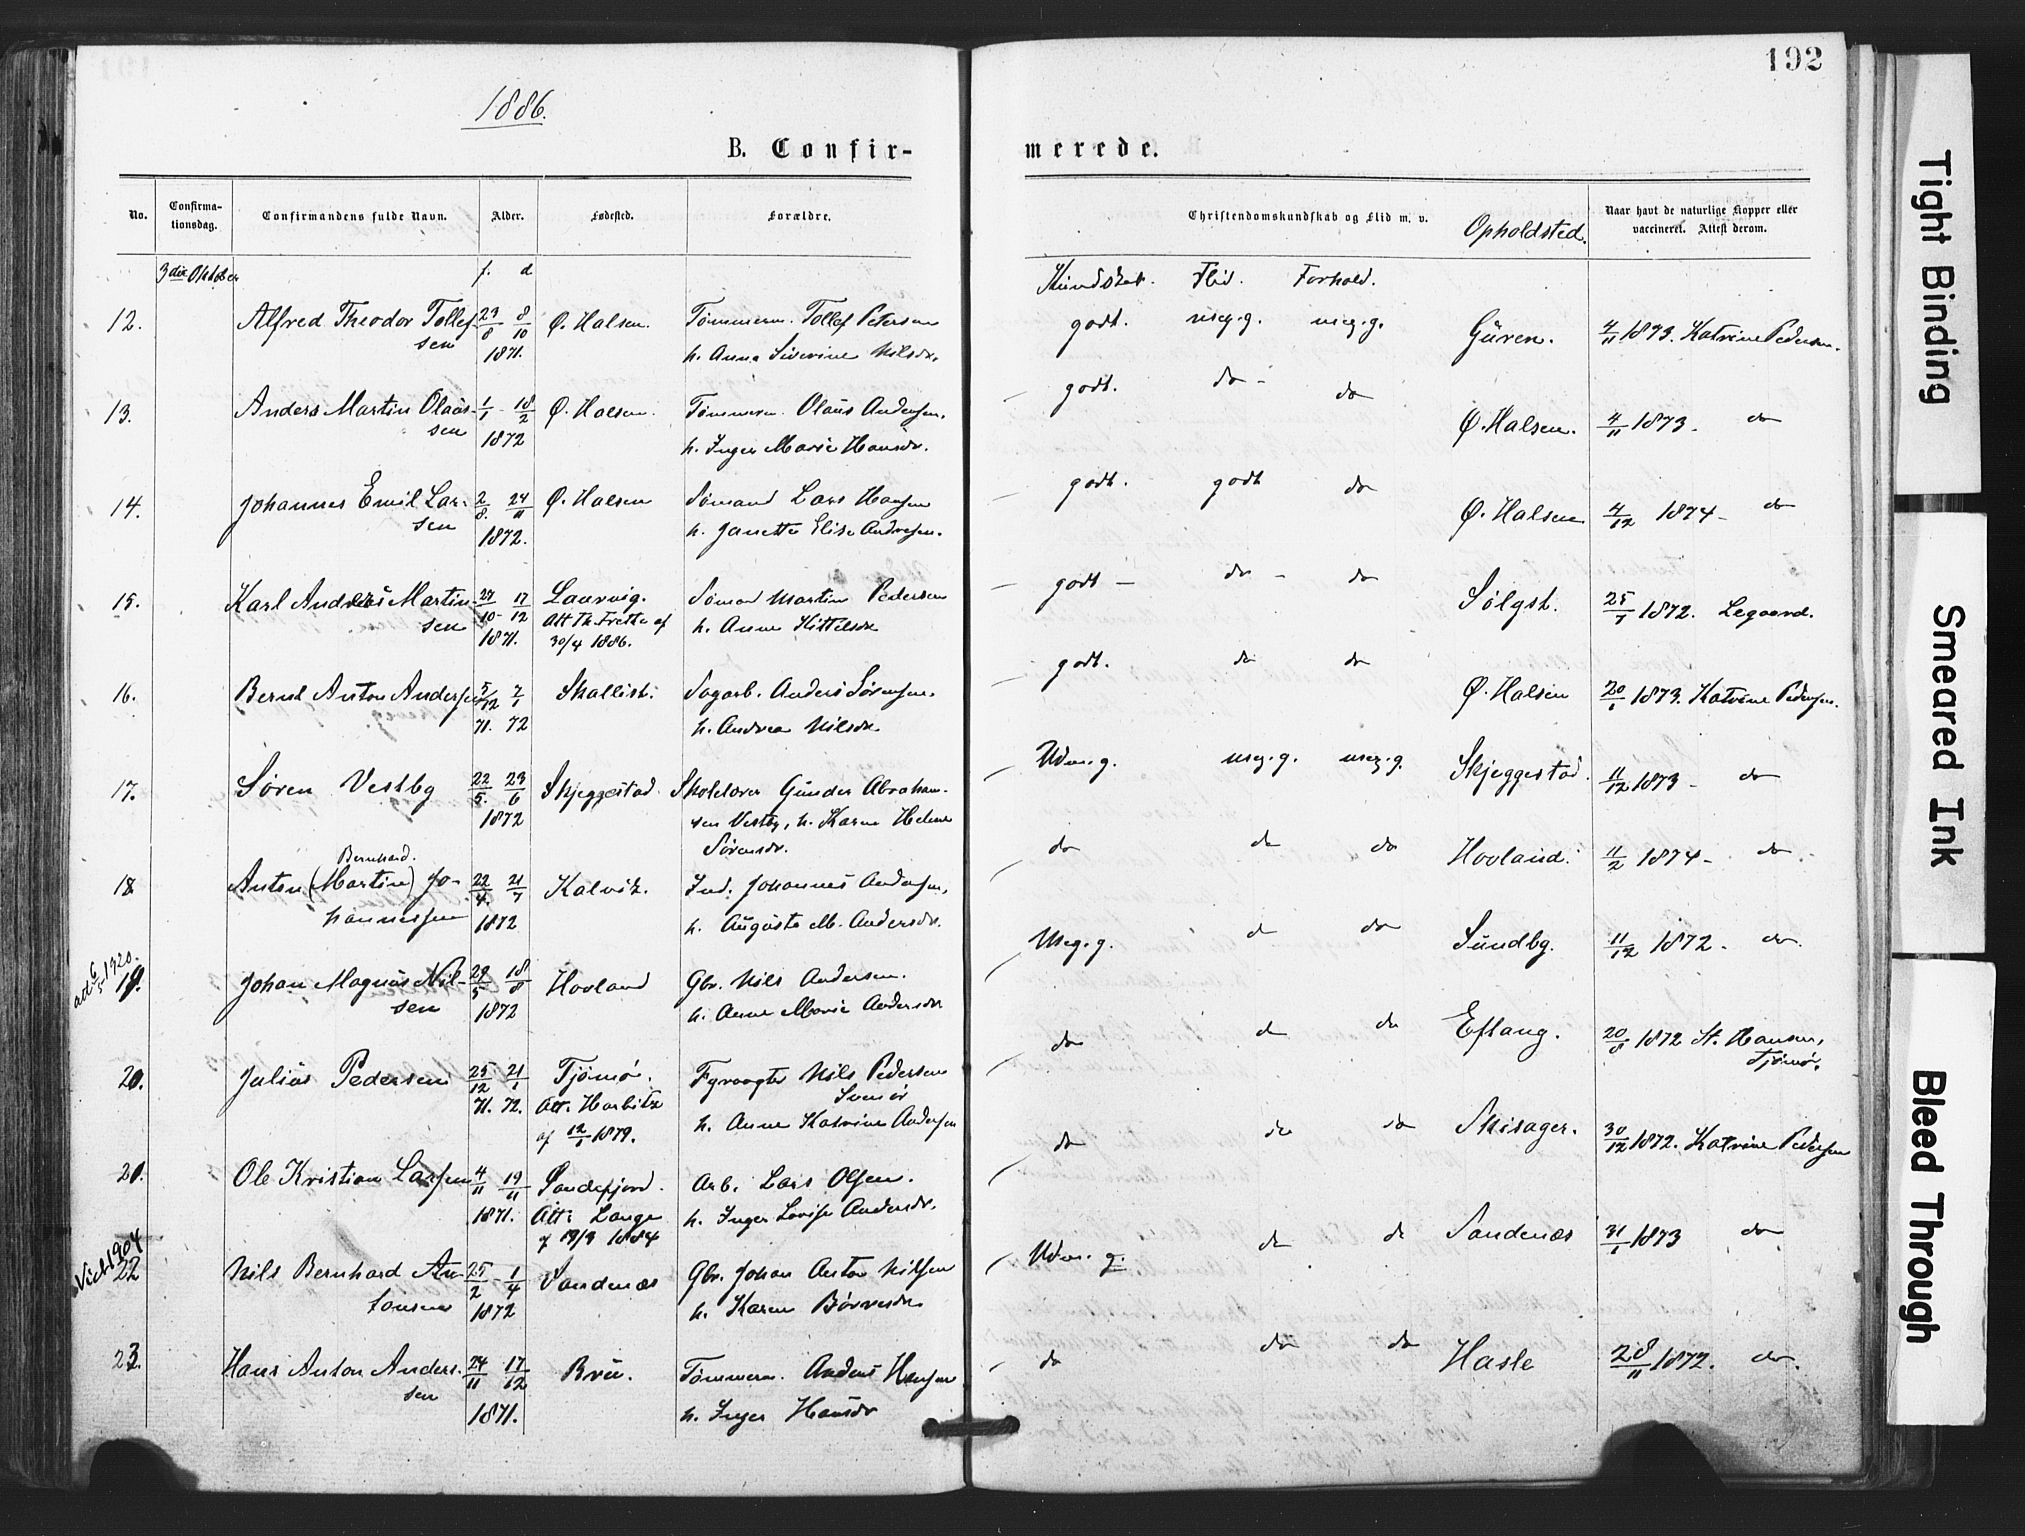 192
1886.
B. Confir-
merede.
No.
Confirma-
tionsdag.
Confirmandens fulde Navn.
Alder.
Fødested.
Forældre.
Christendomskundskab og Flid m. v.
Opholdsted.
Naar havt de naturlige Kopper eller
vaccineret. Attest derom.
3die Oktober
f. d
Kundskab. Flid. Forhold.
12. Alfred Theodor Tollef- 23/8 8/10 Ø. Halsen. Tømmerm. Tollef Petersen godt. meg.g. meg.g. Guren. 4/11 1873. Katrine Pedersen.
sen 1871. h. Anna Siverine Nilsdr.
13. Anders Martin Olaus- 1/1 - 18/2 Ø. Halsen. Tømmerm. Olaus Andersen, godt. do - do Ø. Halsen. 4/11 1873. do
sen 1872 h. Inger Marie Hansdr.
14. Johannes Emil Lar- 2/8. 24/11 Ø. Halsen Sømand Lars Hansen godt. godt do Ø. Halsen 4/12 1874 - do
sen 1872. h. Janette Elise Andresen.
15. Karl Andreas Martin- 27/10 - 17/12 Laurvig. Sømand Martin Pedersen godt - do - do Sølgst. 25/7 1872. Legaard.
sen 1871. Att Th. Frette af h. Anne Kittelsdr
30/4 1886.
16. Bernt Anton Andersen 5/12 7/1 Skallist. Sagarb. Anders Sørensen. godt. do do Ø. Halsen 20/1 1873. Katrine Pedersen.
71. 72 h. Andrea Nilsdr
17. Søren Vestby 22/5. 23/6 Skjeggestad. Skolelærer Gunder Abraham- Udm. g. meg.g. meg.g. Skjeggestad. 11/12 1873 - do
1872 sen Vestby, h. Karen Helene
Sørensdr.
Bernhard.
18 Anton (Martin) Jo- 22/4. 21/7 Kalvik. Ind. Johannes Andersen, do do do Hovland. 11/2 1874 - do
hannessen 1872 h. Auguste M. Andersdr.
att. 6/5 1920.
19. Johan Magnus Nil- 29/5 18/8 Hovland Gbr. Nils Andersen. Meg.g. do do Sundby. 11/12 1872 - do.
sen 1872 h. Anne Marie Andersdr
20. Julius Pedersen 25/12 21/1 Tjømø. Fyrvogter Nils Pedersen do do do Eftang. 20/8 1872 St. Hansen,
71. 72. Att. Horbitz Svenør Tjømø.
af 12/1 1879. h. Anne Katrine Andersen
21. Ole Kristian Larsen 4/11 19/11 Sandefjord. Arb. Lars Olsen. do do do Skisager. 30/12 1872. Katrine Pedersen
1871. Att: Lange h. Inger Lovise Andersdr.
f 19/3 1884
Vielt 1904
22 Nils Bernhard An- 25/2 - 1/4 Sandenæs Gbr. Johan Anton Nilsen Udm. g. do do Sandenæs 31/1 1873 do
tonsen 1872 h. Karen Børresdr.
23. Hans Anton Anders- 24/11 17/12 Breu. Tømmerm. Anders Hansen do do do Hasle 28/11 1872. do.
sen 1871. h. Inger Hansdr
Tight Binding
Smeared Ink
Bleed Through